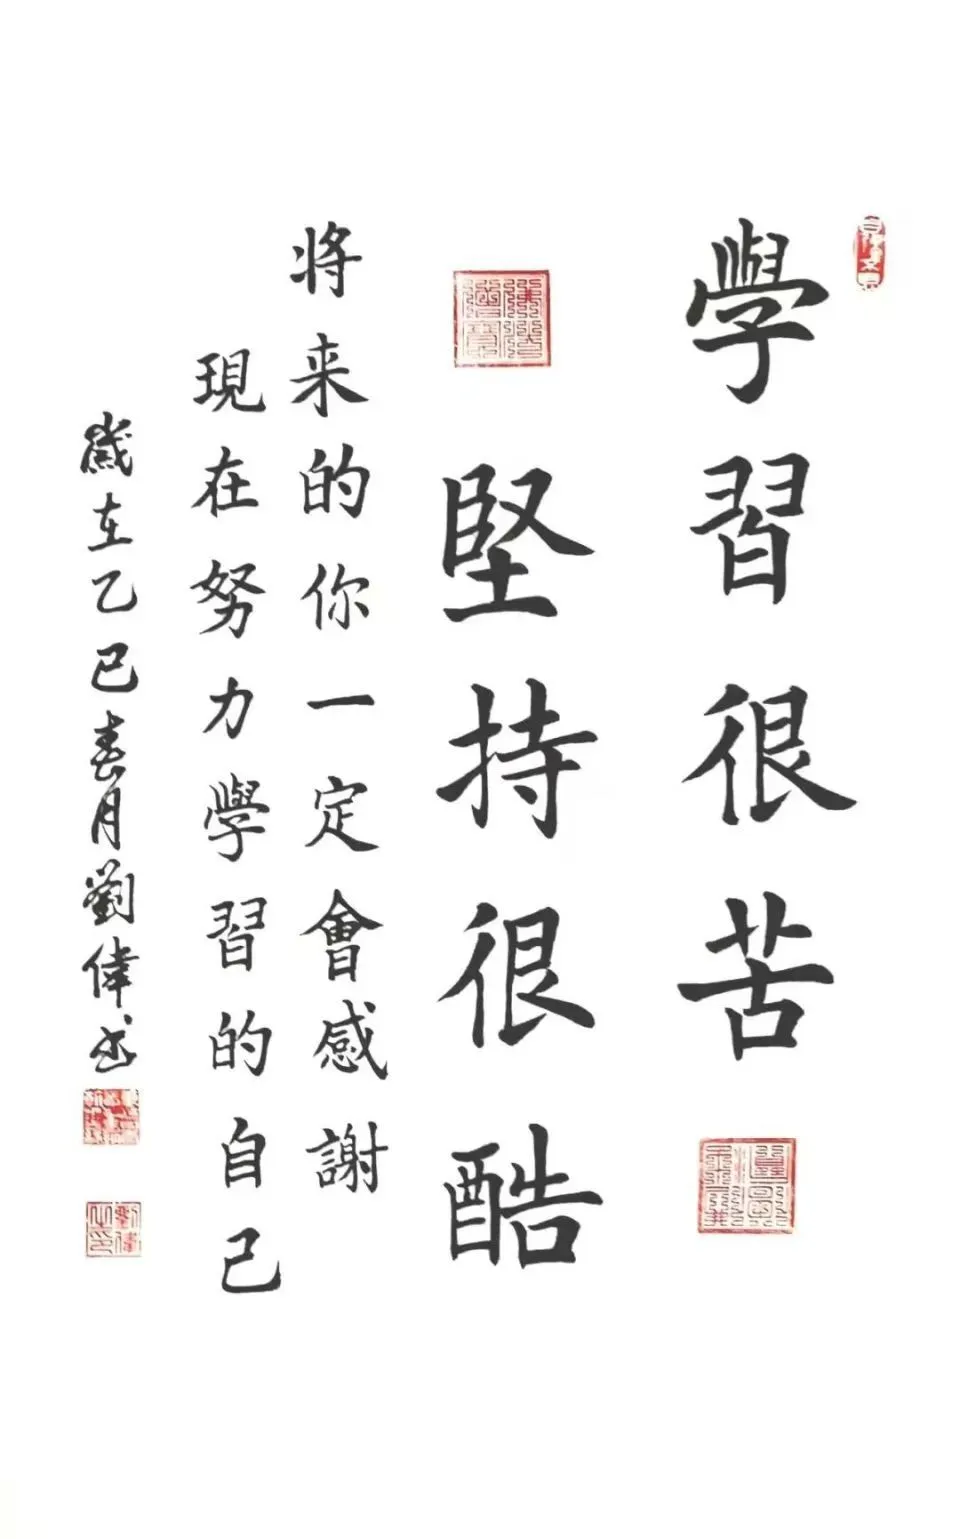 學習很苦
堅持很酷
将来的你一定會感謝
現在努力學習的自己
歲在乙巳春月劉偉书
劉偉之印